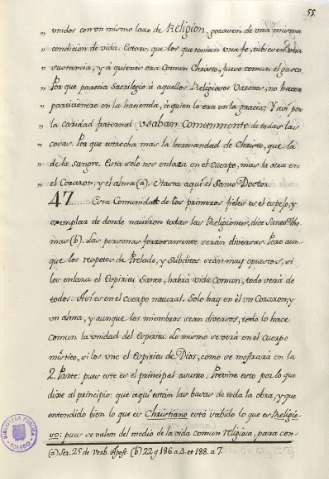 55.
unidos con un mismo lazo de Religion, gozasen de una misma
condicion de vida: Estos, que los que tenian una fe,
sustancia, y à quienes era comun Christo, fuese comun el gasto.
Por que parecia Sacrilegio à aquellos Religiosos Varones, no hacer
participante en la hacienda, à quien lo era en la gracia; Y asi por
la caridad fraternal usaban comunmente de todas las
cosas. Por que estrecha mas la hermandad de Christo, que la
de la sangre. Esta solo nos enlaza en el cuerpo, mas la otra en
el Corazon, y el alma (a). Hasta aquí el Santo Doctor.
47. Esta Comunidad de los primeros fieles es el espejo, y
exemplar de donde nacieron todas las Religiones, dice Santo Tho-
mas (b). Las personas forzosamente serán diversas. Pero aun-
que los respetos de Prelado, y Subditos serán muy opuestos, si
los enlaza el Espiritu Santo, habrá vida comun, todo será de
todos. Así es en el cuerpo natural. Solo hay en él un Corazon, y
un alma, y aunque los miembros sean diversos, todo lo hace
comun la unidad del Espiritu. Lo mismo se verá en el cuerpo
místico, si los une el Espiritu de Dios, como se mostrará en la
2. Parte: pues este es el principal asunto. Previne esto por lo que
dixe al principio: que aquí están las basas de toda la obra, y que
entendido bien lo que es Christiano está sabido lo que es Religio-
so: pues se valen del medio de la vida comun religiosa, para con-
(a) Ser. 25 de Verb. Apost. (b) 22 q 186 a. 4. et 188. a 7.